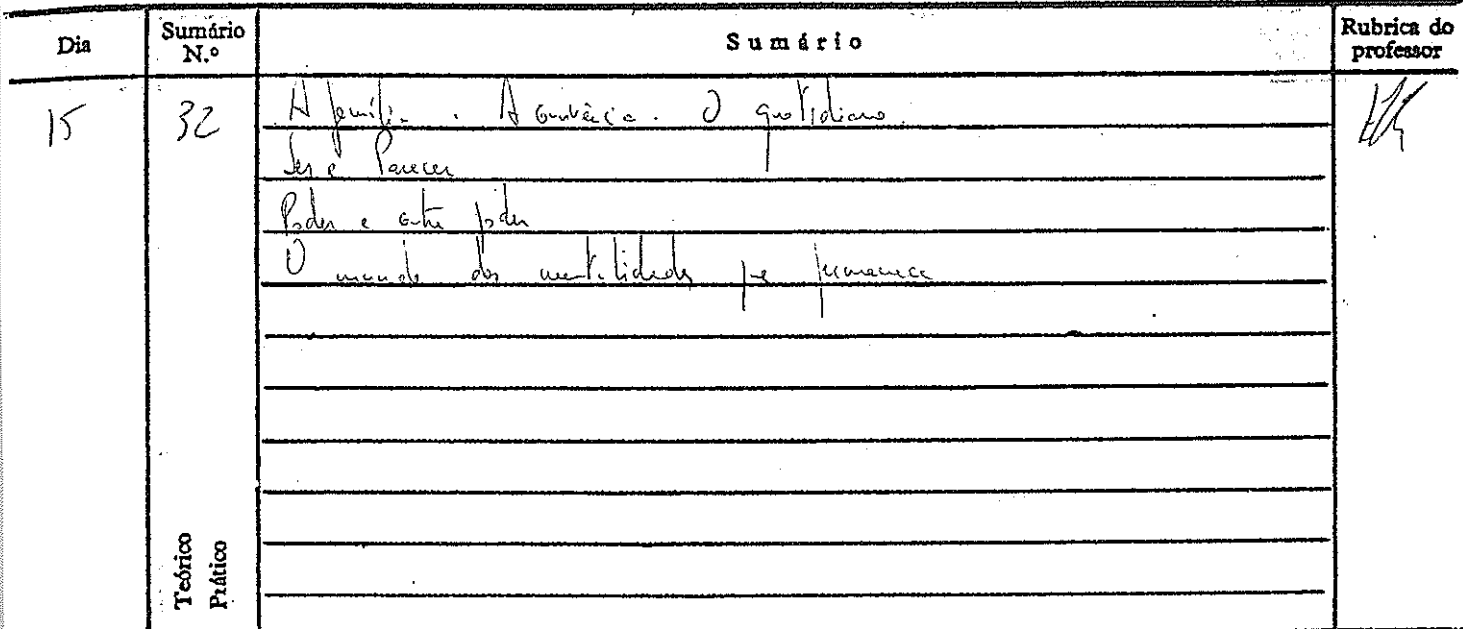 Dia Sumário N.º Sumário Rubrica do professor
15 32 A família. A O quotidiano.
Ser e Parecer
Poder e contra poder
O mundo das mentalidades que permanece
Teórico
Prático